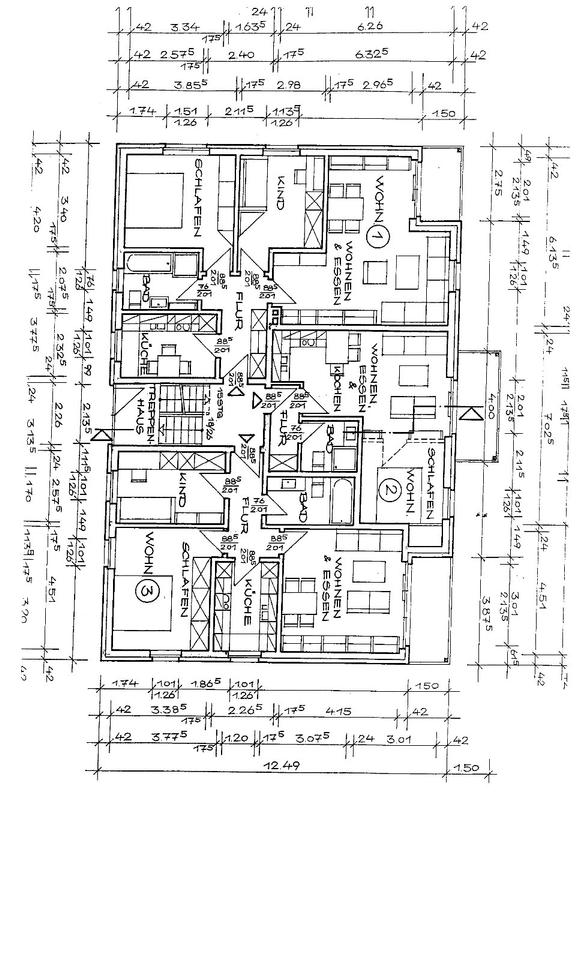 24
42 3.34 1.63⁵ 24 6.26 42
17⁵
42 2.57⁵ 2.40 17⁵ 6.32⁵ 42
17⁵
42 3.85⁵ 17⁵ 2.98 17⁵ 2.96⁵ 42
1.74 1.51 2.11⁵ 1.13⁵ 1.50
1.26 1.26
SCHLAFEN
KIND
WOHN 1
WOHNEN
& ESSEN
BAD
FLUR
88⁵
201
88⁵
201
88⁵
201
76
201
KÜCHE
88⁵
201
TREPPEN
HAUS
KOCHEN
WOHNEN
& ESSEN
FLUR
88⁵
201
88⁵
201
76
201
BAD
SCHLAFEN
WOHN.
2
KIND
88⁵
201
FLUR
76
201
BAD
WOHN 3
SCHLAFEN
88⁵
201
88⁵
201
88⁵
201
KÜCHE
WOHNEN
& ESSEN
42 4.20 1.75 3.77⁵ 24 3.13⁵ 1.70 17⁵
42 3.40 17⁵ 2.07⁵ 17⁵ 2.32⁵ 24 2.26 24 2.57⁵ 17⁵ 4.51 42
76 1.49 1.01 99 2.13⁵ 1.01 1.49 1.01
1.26 1.26 1.26 1.26
2.75 4.00 3.87⁵
49 2.01 1.49 1.01 1.01 2.11⁵ 1.01 1.49 3.01 61⁵
2.13⁵ 1.26 2.13⁵ 1.26 2.13⁵
42 6.13⁵ 24 7.02⁵ 24 4.51 42
24
1.74 1.01 1.86⁵ 1.01 1.50
1.26 1.26
42 3.38⁵ 2.26⁵ 17⁵ 4.15 42
17⁵
42 3.77⁵ 1.20 17⁵ 3.07⁵ 24 3.01 42
17⁵
12.49 1.50